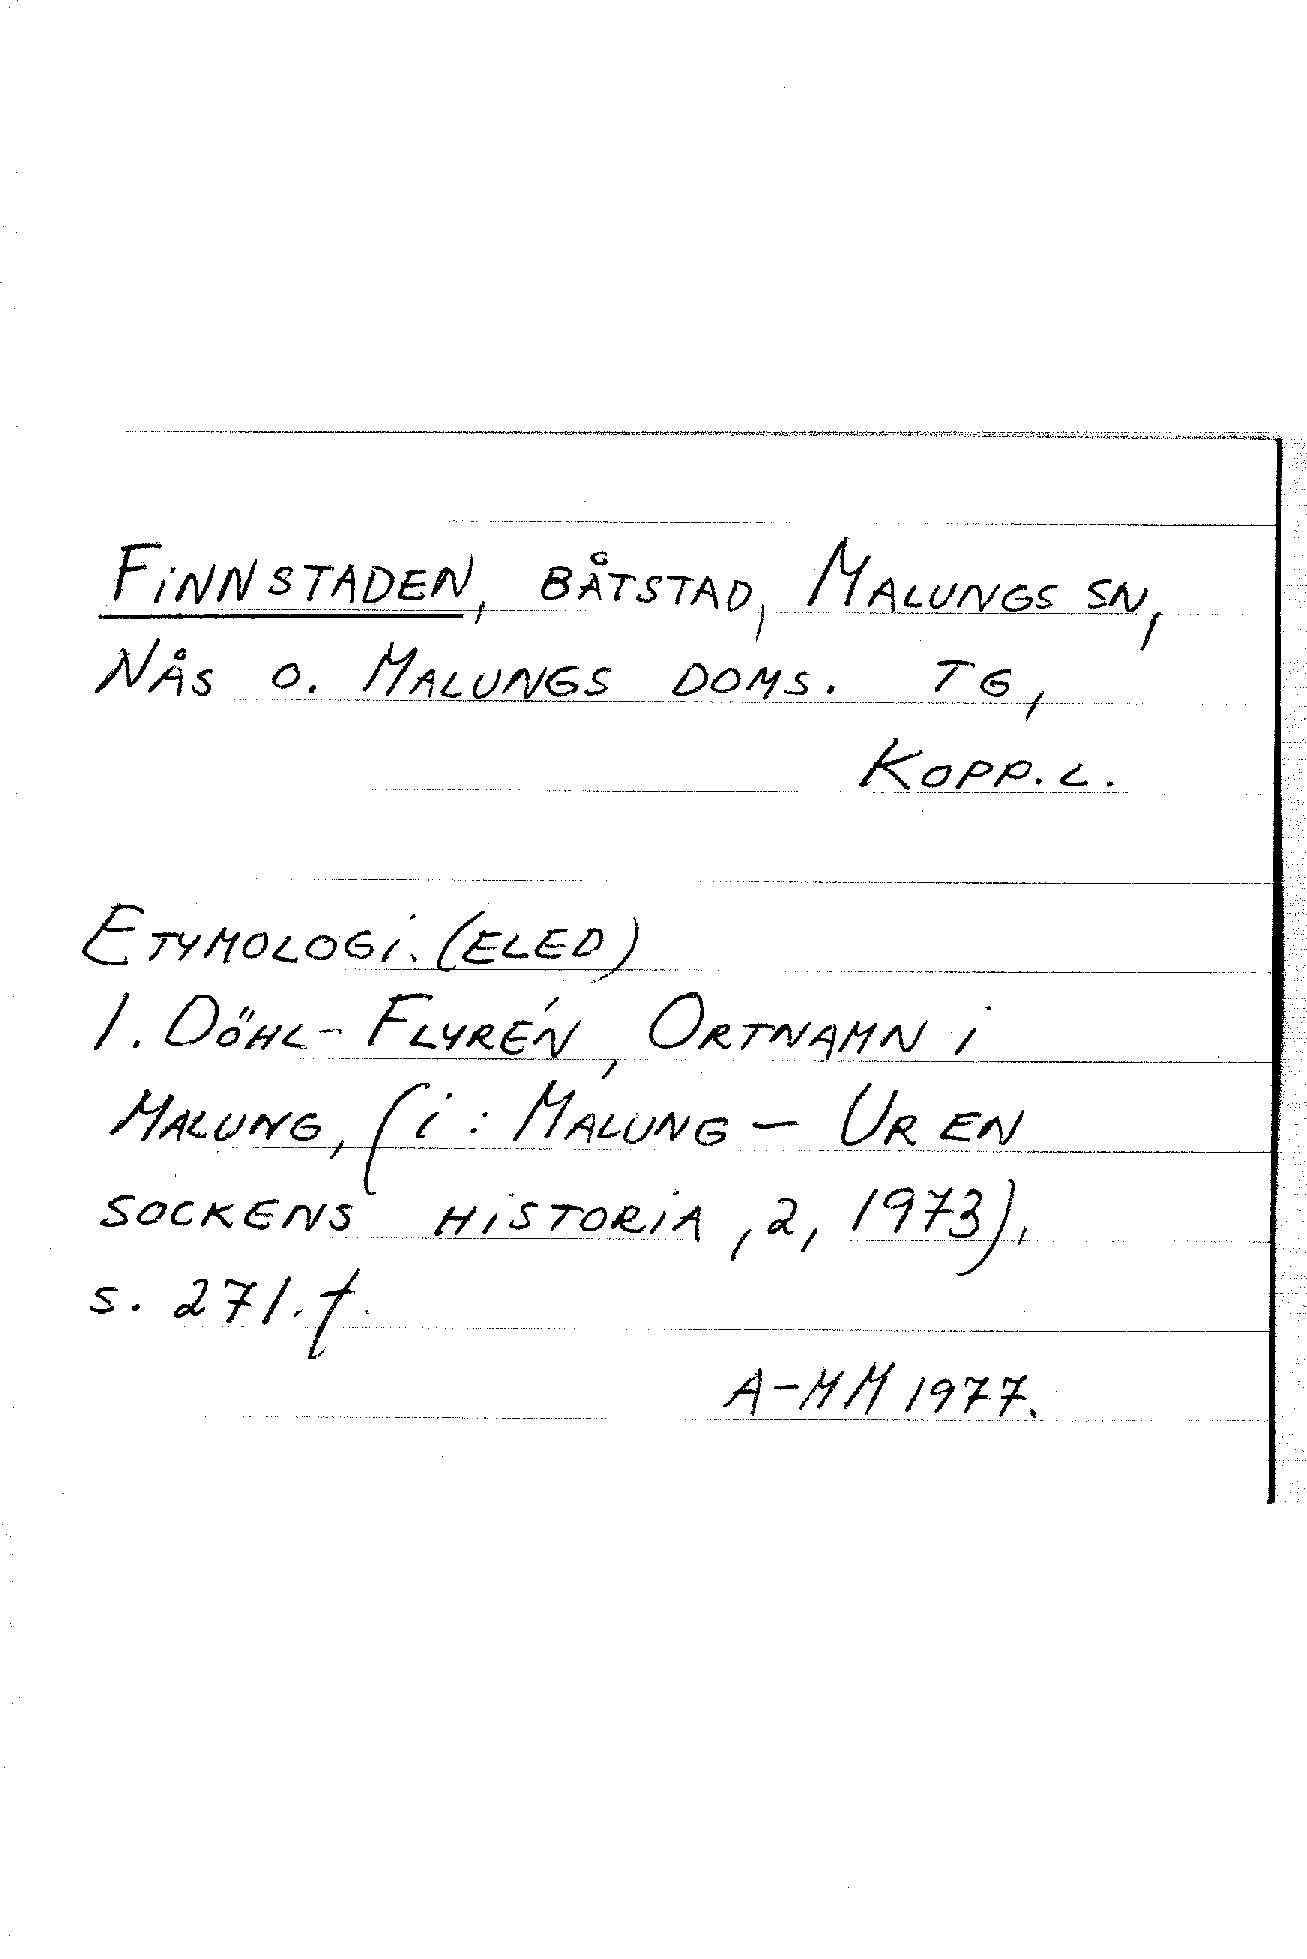 FINNSTADEN, BÅTSTAD, MALUNGS SN,
NÅS O. MALUNGS DOMS. TG,
KOPP. L.
ETYMOLOGI. (ELED)
I. DÖHL-FLYRÉN, ORTNAMN I
MALUNG, (I: MALUNG – UR EN
SOCKENS HISTORIA, 2, 1973),
S. 271. f.
A-MM 1977.